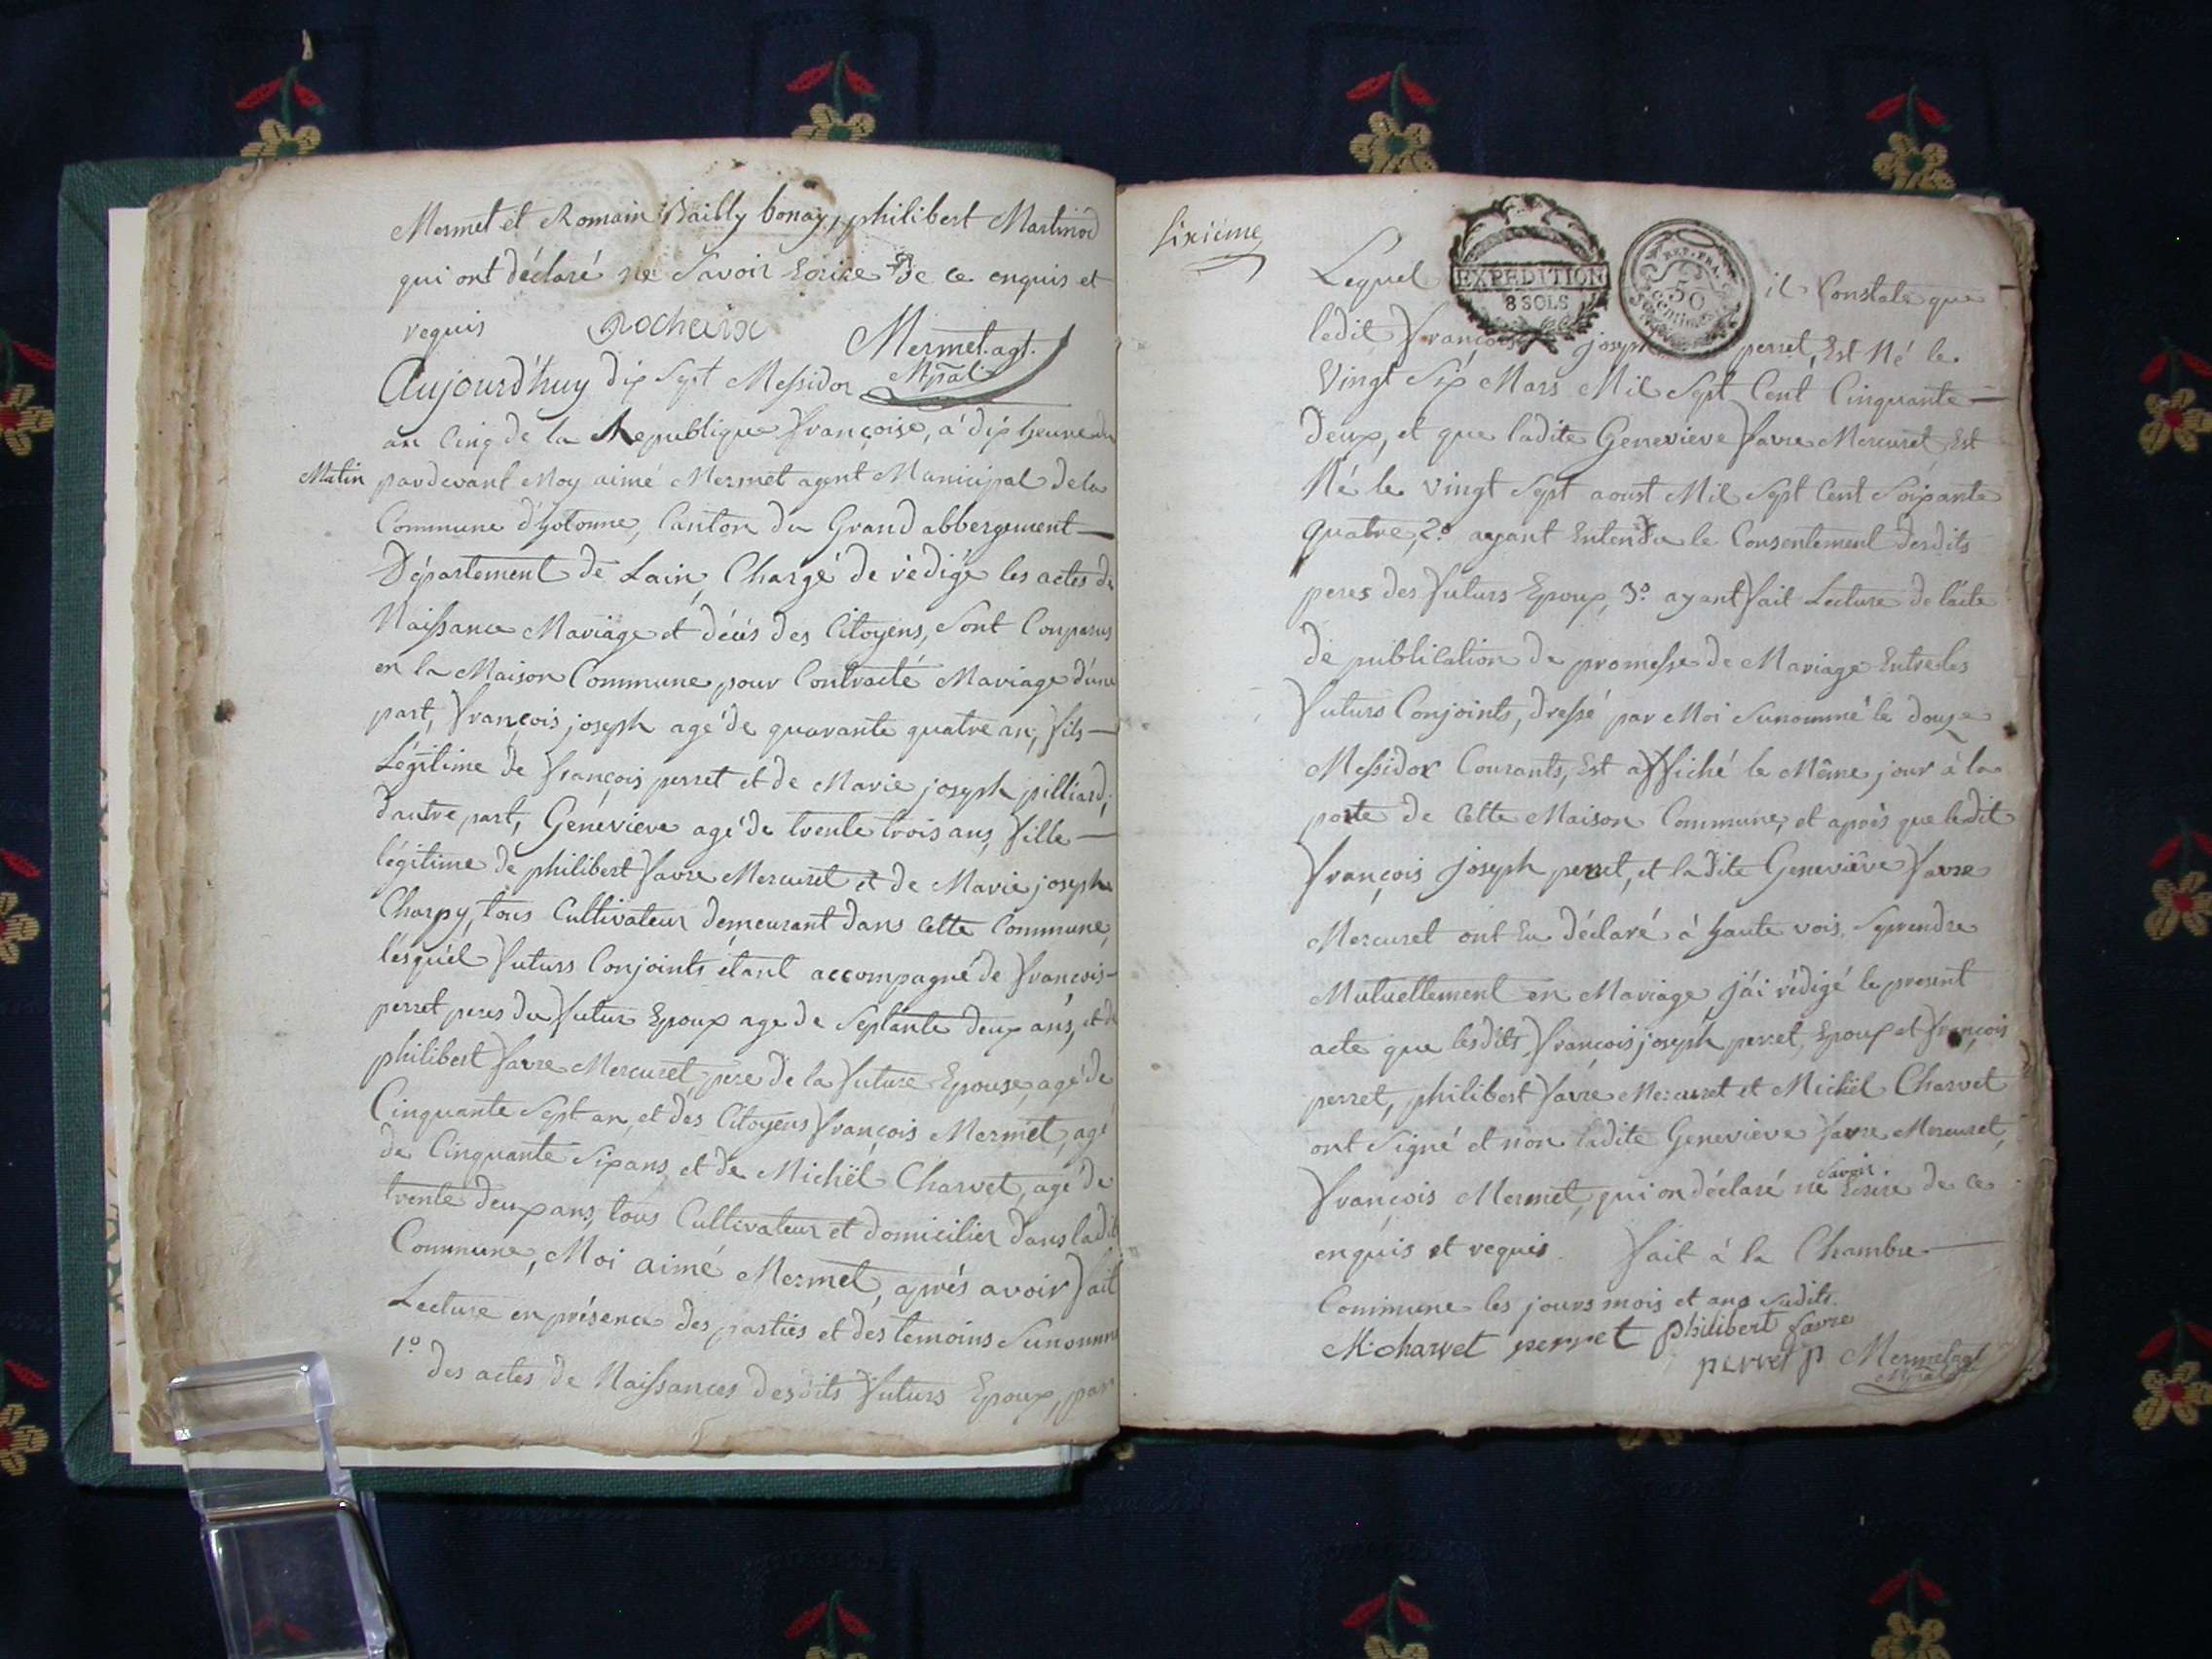 Mermet et Romain Bailly bonay, philibert Martinod
qui ont déclaré ne Savoir Ecrire de ce enquis et
requis Rocheux Mermet. agt.
Mpâl
Aujourd'huy dix Sept Messidor
an Cinq de la Republique françoise, à dix heure du
Matin pardevant Moy aimé Mermet agent Municipal de la
Commune d'hotonne, Canton du Grand abbergement
Département de Lain, Chargé de rédigé les actes de
Naissance Mariage et décés des Citoyens, Sont Comparus
en la Maison Commune pour Contracté Mariage d'une
part, françois joseph agé de quarante quatre an, fils
Légitime de françois perret et de Marie joseph pilliard,
d'autre part, Généviève agé de trente trois ans, fille
légitime de philibert favre Mercuret et de Marie joseph
Charpy, tous Cultivateur demeurant dans Cette Commune,
lesquél futurs Conjoints étant accompagné de françois
perret peres du futur Epoux agé de Septante deux ans, et de
philibert favre Mercuret, père de la future Epouse, agé de
Cinquante Sept an, et des Citoyens françois Mermet, agé
de Cinquante Six ans, et de Michël Charvet, agé de
trente deux ans, tous Cultivateur et domicilier dans ladit
Commune, Moi aimé Mermet, aprés avoir fait
Lecture en présence des parties et des temoins Sunommé
1º des actes de Naissances desdits futurs Epoux, par
Sixiéme
EXPEDITION
8 SOLS
REP. FRA.
50
Centimes
Lequel il Constate que
ledit françois joseph perret, Est Né le
Vingt Six Mars Mil Sept Cent Cinquante
deux, et que ladite Genevieve favre Mercuret Est
Né le vingt Sept aoust Mil Sept Cent Soixante
quatre, 2º ayant Entendu le Consentement desdits
peres des futurs Epoux, 3º ayant fait Lecture de l'acte
de publication de promesse de Mariage Entre les
futurs Conjoints, dressé par Moi Sunommé le douze
Messidor Courants, Est affiché le Même jour à la
porte de Cette Maison Commune, et après que ledit
françois Joseph perret, et ladite Geneviève favre
Mercuret ont Eu déclaré à haute vois Seprendre
Mutuellement en Mariage j'ai rédigé le present
acte que lesdits françois joseph perret, Epoux et françois
perret, philibert favre Mercuret et Michël Charvet
ont Signé et non ladite Genevieve favre Mercuret,
françois Mermet, qui on déclaré ne Savoir Ecrire de ce
enquis et requis. fait à la Chambre
Commune les jours mois et ans Sudits.
M. charvet perret philibert favre
perret p Mermet agt
Mpal